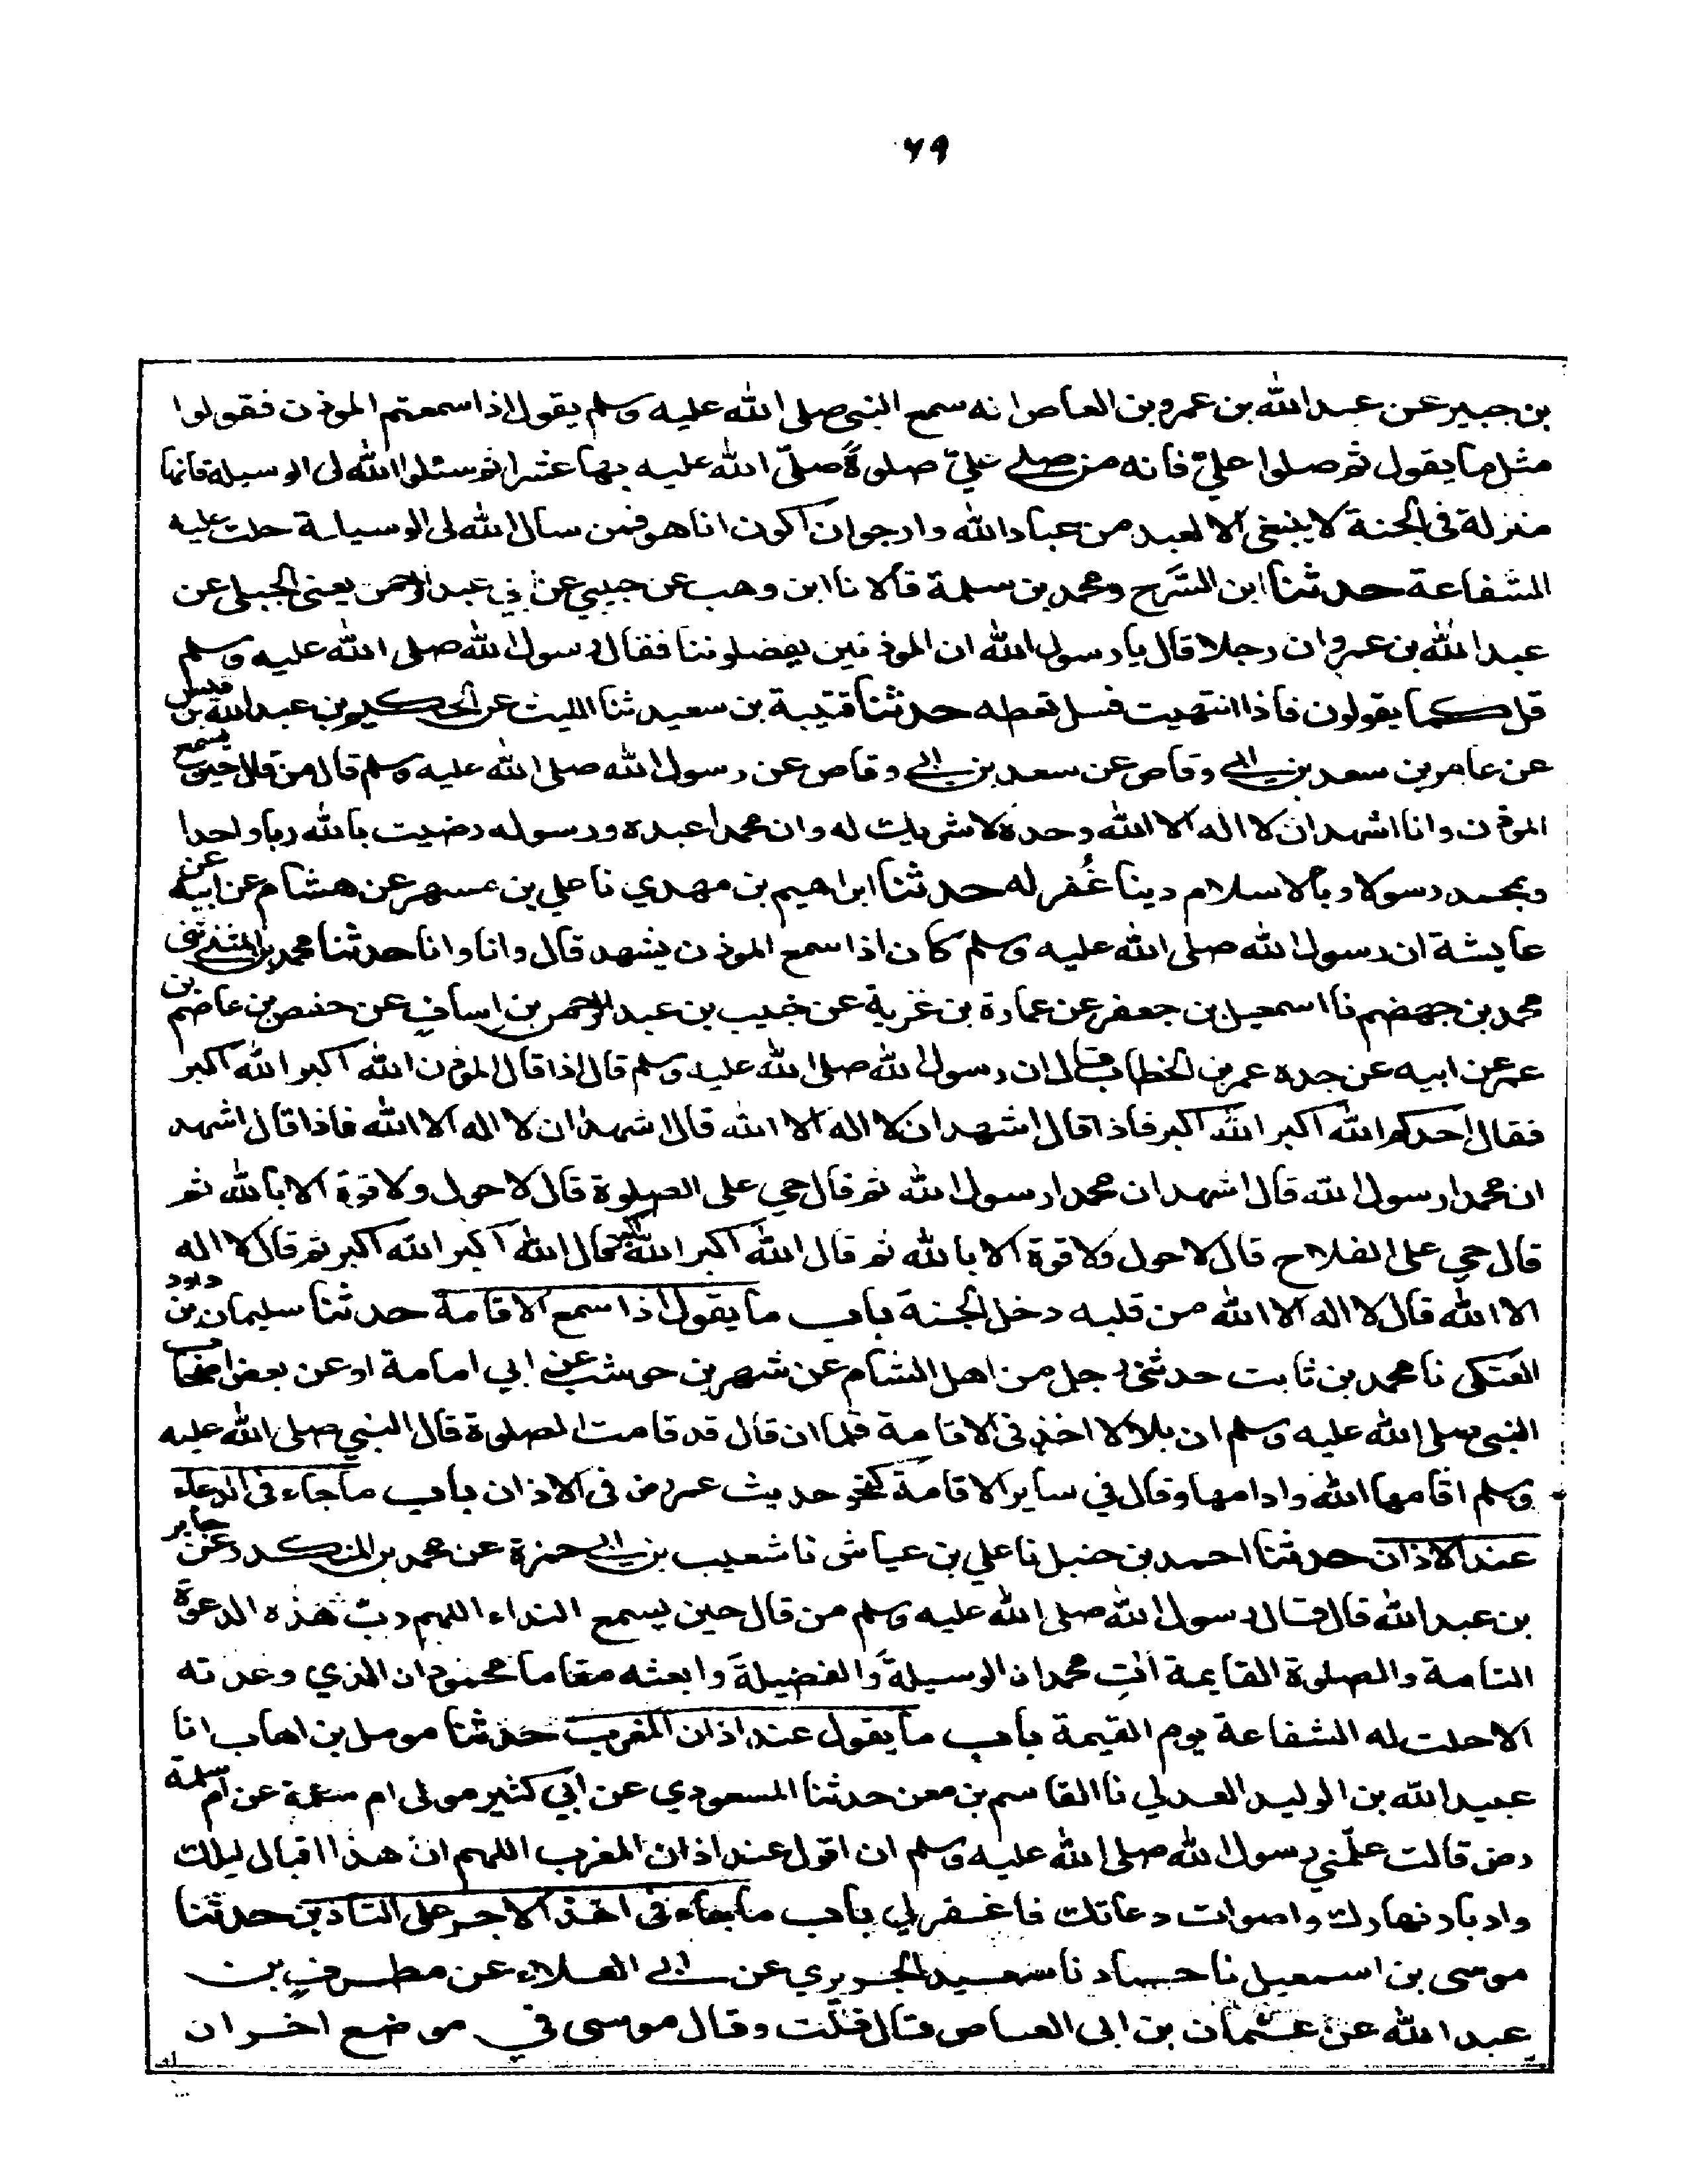 ٦٩
بن جبير عن عبد الله بن عمرو بن العاص انه سمع النبي صلى الله عليه وسلم يقول اذا سمعتم الموذن فقولوا
مثل ما يقول ثم صلوا علي فانه من صلى علي صلوةً صلّى الله عليه بها عشرا ثم سئلوا الله لي الوسيلة فانها
منزلة في الجنة لا ينبغي الا لعبد من عباد الله وارجوا ان اكون انا هو فمن سال الله لي الوسيلة حلت عليه
الشفاعة حدثنا ابن السَّرح ومحمد بن سلمة قالا نا ابن وهب عن حيي عن ابي عبد الرحمن يعنى الحبلي عن
عبد الله بن عمرو ان رجلا قال يا رسول الله ان الموذنين يفضلوننا فقال رسول الله صلى الله عليه وسلم
قل كما يقولون فاذا انتهيت فسل تعطه حدثنا قتيبة بن سعيد ثنا الليث عن الحكيم بن عبد الله بن قيس
عن عامر بن سعد بن ابي وقاص عن سعد بن ابي وقاص عن رسول الله صلى الله عليه وسلم قال من قال حين يسمع
الموذن وانا اشهد ان لا اله الا الله وحده لا شريك له وان محمدا عبده ورسوله رضيت بالله ربا واحدا
وبمحمد رسولا وبالاسلام دينا غُفر له حدثنا ابراهيم بن مهدي نا علي بن مسهر عن هشام عن ابيه عن
عايشة ان رسول الله صلى الله عليه وسلم كان اذا سمع الموذن يشهد قال وانا وانا حدثنا محمد بن المثنى ثنى
محمد بن جهضم نا اسمعيل بن جعفر عن عمارة بن غزية عن خبيب بن عبد الرحمن بن اساف عن حفص بن عاصم بن
عمر عن ابيه عن جده عمر بن الخطاب قال ان رسول الله صلى الله عليه وسلم قال اذا قال الموذن الله اكبر الله اكبر
فقال احدكم الله اكبر الله اكبر فاذا قال اشهد ان لا اله الا الله قال اشهد ان لا اله الا الله فاذا قال اشهد
ان محمدا رسول الله قال اشهد ان محمدا رسول الله ثم قال حي على الصلوة قال لا حول ولا قوة الا بالله ثم
قال حي على الفلاح قال لا حول ولا قوة الا بالله ثم قال الله اكبر الله اكبر قال الله اكبر الله اكبر ثم قال لا اله
الا الله قال لا اله الا الله من قلبه دخل الجنة باب ما يقول اذا سمع الاقامة حدثنا سليمان بن داود
العتكي نا محمد بن ثابت حدثني رجل من اهل الشام عن شهر بن حوشب عن ابي امامة او عن بعض اصحاب
النبي صلى الله عليه وسلم ان بلالا اخذ في الاقامة فلما ان قال قد قامت الصلوة قال النبي صلى الله عليه
وسلم اقامها الله وادامها وقال في ساير الاقامة كنحو حديث عمر رض فى الاذان باب ما جاء في الدعاء
عند الاذان حدثنا احمد بن حنبل نا علي بن عياش نا شعيب بن ابي حمزة عن محمد بن المنكدر عن جابر
بن عبد الله قال قال رسول الله صلى الله عليه وسلم من قال حين يسمع النداء اللهم ربّ هذه الدعوة
التامة والصلوة القايمة اٰتِ محمدان الوسيلةَ والفضيلةَ وابعثه مقاما محمودان الذي وعدته
الا حلت له الشفاعة يوم القيمة باب ما يقول عند اذان المغرب حدثنا مومل بن اهاب انا
عبيد الله بن الوليد العدلي نا القاسم بن معن حدثنا المسعودي عن ابي كثير مولى ام سلمة عن ام سلمة
رض قالت علّمني رسول الله صلى الله عليه وسلم ان اقول عند اذان المغرب اللهم ان هذا اقبال ليلك
وادبار نهارك واصوات دعاتك فاغفر لي باب ما جاء فى اخذ الاجر على التاذين حدثنا
موسى بن اسمعيل نا حماد نا سعيد الجريري عن ابي العلاء عن مطرف بن
عبد الله عن عثمان بن ابى العاص قال قلت وقال موسى في موضع اخر ان